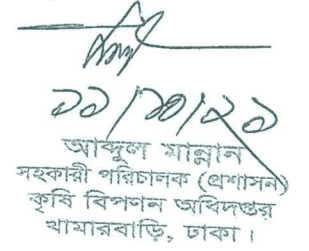 ১১/১০/২১
আব্দুল মান্নান
সহকারী পরিচালক (প্রশাসন)
কৃষি বিপণন অধিদপ্তর
খামারবাড়ি, ঢাকা।